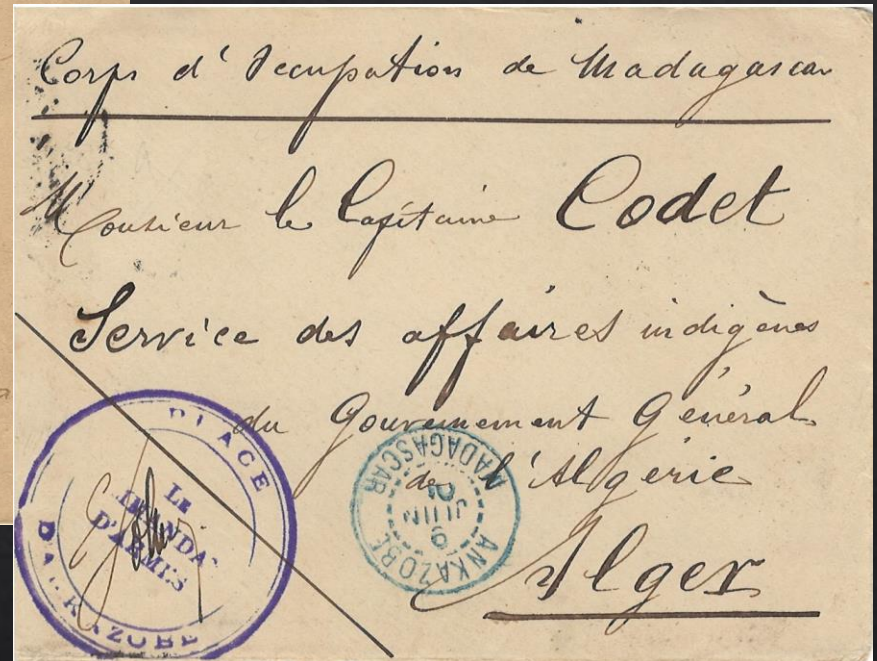 Corps d'Occupation de Madagascar
Monsieur le Capitaine Codet
Service des affaires indigènes
du Gouvernement Général
de l'Algérie
Alger
PLACE
LE
D'ARMES
ANKAZOBE
9
JUIN
MADAGASCAR